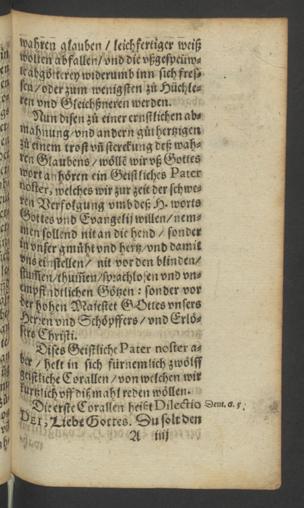 wahren glauben / leichfertiger weiß
wöllen abfallen / vnd die vßgespeüw-
te abgötterey widerumb inn sich fres-
sen / oder zum wenigsten zu Hüchle-
ren vnd Gleichßneren werden.
Nun disen zů einer ernstlichen ab-
mahnung / vnd andern gůthertzigen
zů einem trost vñ sterckung deß wah-
ren Glaubens / wöllẽ wir vß Gottes
wort anhören ein Geistliches Pater
noster, welches wir zur zeit der schwe-
ren Verfolgung vmb deß H. worts
Gottes vnd Evangelij willen / nem-
men sollend nit an die hend / sonder
in vnser gmüht vnd hertz / vnd damit
vns einstellen / nit vor den blinden /
stuṁen / thuṁen / sprachlosen vnd vn-
empfindtlichen Götzen: sonder vor
der hohen Maiestet GOttes vnsers
Herren vnd Schöpffers / vnd Erlö-
sers Christi.
Dises Geistliche Pater noster a-
ber / helt in sich fürnemlich zwölff
geistliche Corallen / von welchen wir
kürtzlich vff diß mahl reden wöllen.
Die erste Corallen heißt Dilectio Deut. 6. 5.
DEI, Liebe Gottes. Du solt den
A iiij